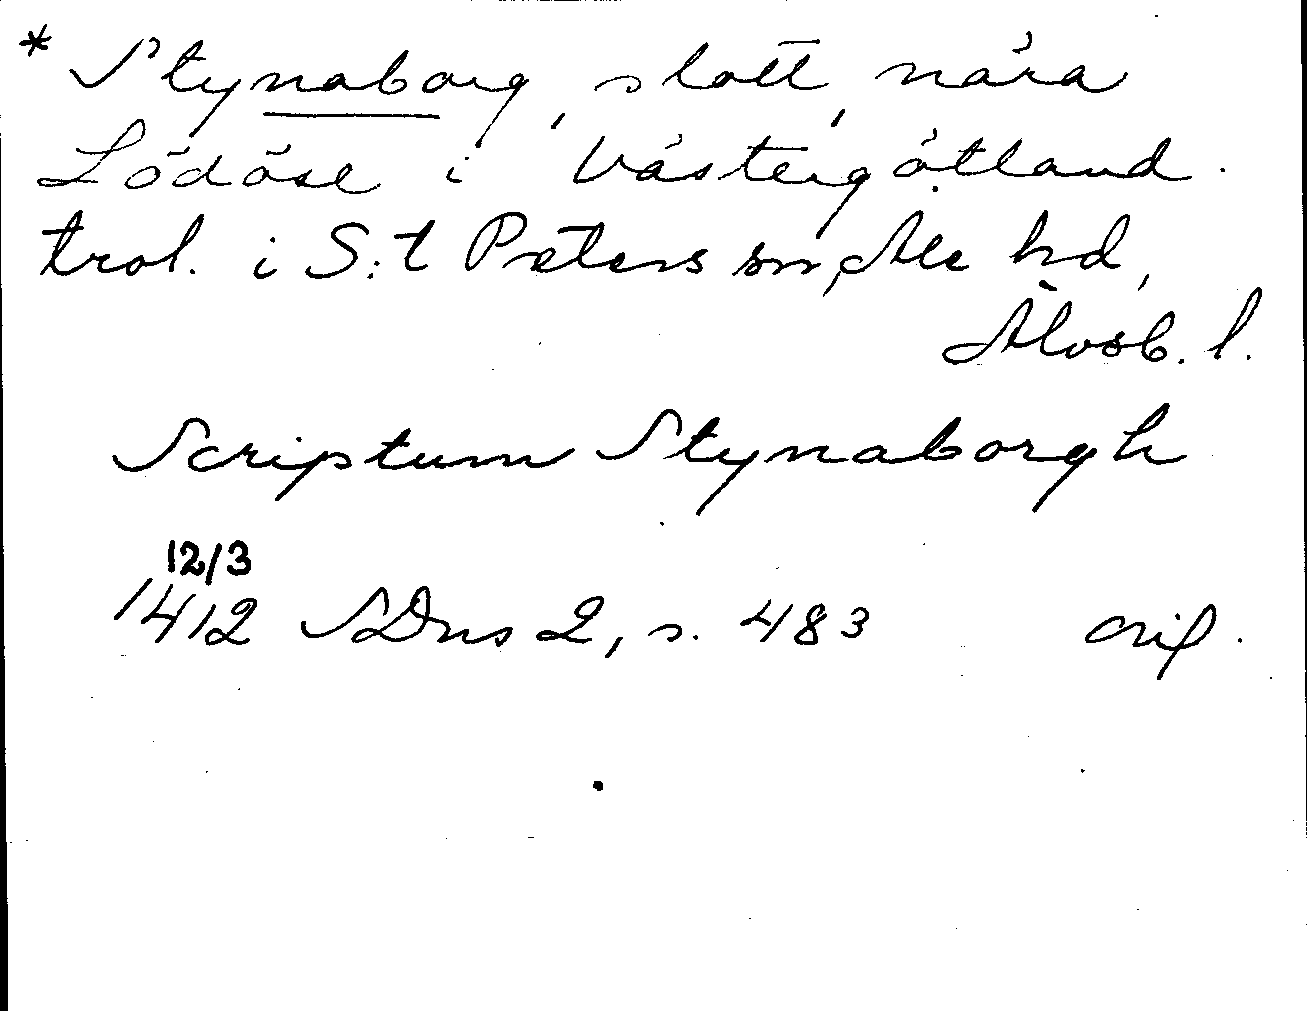 * Stynaborg, slott, nära
Lödöse i Västergötland.
trol. i S:t Peters sn, Ale hd,
Älvsb. l.
Scriptum Stynaborgh
12/3
1412 SDns 2, s. 483 orig.